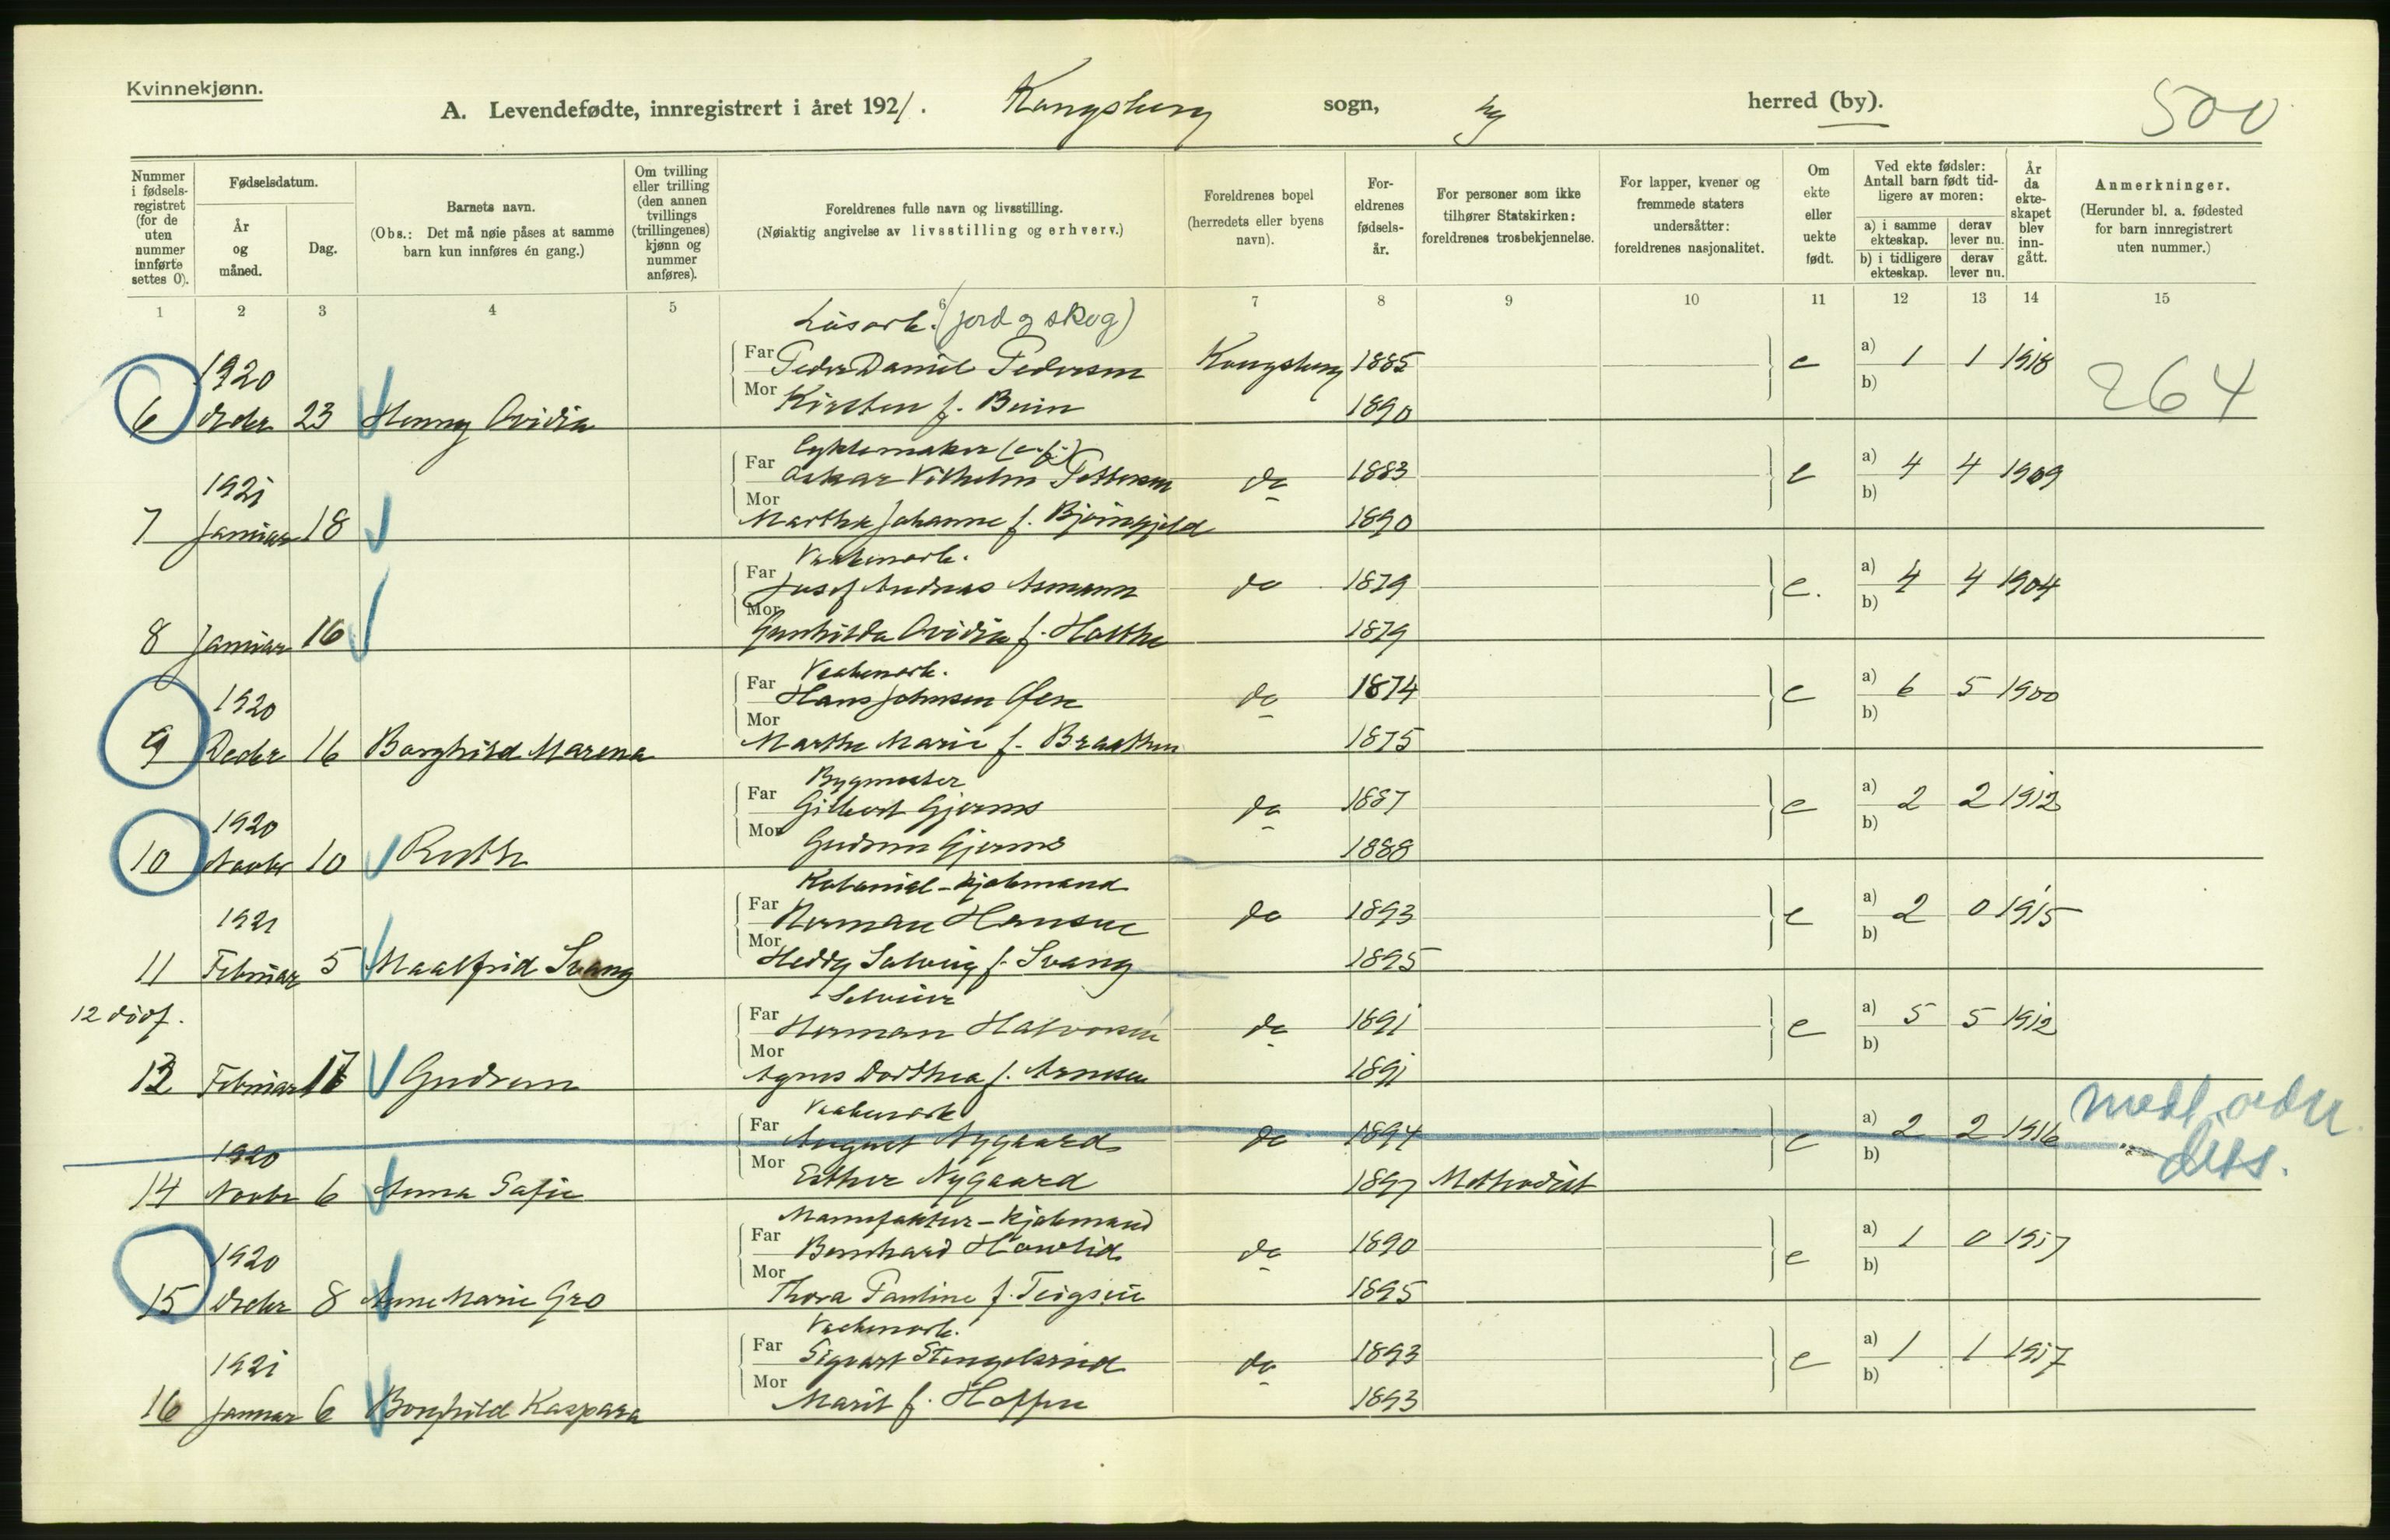 Kvinnekjønn.
A. Levendefødte, innregistrert i året 1921. Kongsberg sogn, by herred (by). 500
Nummer i fødselsregistret (for de uten nummer innførte settes 0).
Fødselsdatum.
År og måned.
Dag.
Barnets navn.
(Obs.: Det må nøie påses at samme barn kun innføres én gang.)
Om tvilling eller trilling (den annen tvillings (trillingenes) kjønn og nummer anføres).
Foreldrenes fulle navn og livsstilling.
(Nøiaktig angivelse av livsstilling og erhverv.)
Foreldrenes bopel (herredets eller byens navn).
Foreldrenes fødselsår.
For personer som ikke tilhører Statskirken: foreldrenes trosbekjennelse.
For lapper, kvener og fremmede staters undersåtter: foreldrenes nasjonalitet.
Om ekte eller uekte født.
Ved ekte fødsler: Antall barn født tidligere av moren:
a) i samme ekteskap. derav lever nu.
b) i tidligere ekteskap. derav lever nu.
År da ekteskapet blev inngått.
Anmerkninger.
(Herunder bl. a. fødested for barn innregistrert uten nummer.)
1 2 3 4 5 6 7 8 9 10 11 12 13 14 15
Løsarb. (jord og skog)
1920 Far Peder Daniel Pedersen Kongsberg 1885 e a) 1 1 1918
6 Decbr 23 Henny Ovidia Mor Kirsten f. Buin 1890 b) 264
Cyklemaker
1921 Far Oskar Vilhelm Pettersen do 1883 e a) 4 4 1909
7 Januar 18 Mor Marthe Johanne f. Bjørngjeld 1890 b)
Vaabenarb.
Far Josef Andreas Asmann do 1879 e. a) 4 4 1904
8 Januar 16 Mor Gunhilda Ovidia f. Holthe 1879 b)
Vaabenarb.
1920 Far Hans Johnsen do 1874 e a) 6 5 1900
9 Decbr 16 Borghild Marena Mor Marthe Marie f. Braathen 1875 b)
Bygmester
1920 Far Gilbert Gjerms do 1887 e a) 2 2 1912
10 Novbr 10 Ruth Mor Gudrun Gjerms 1888 b)
Kolonial-kjøbmand
1921 Far Herman Hansen do 1893 e a) 2 0 1915
11 Februar 5 Maalfrid Svang Mor Heddy Solveig f. Svang 1895 b)
12 dødf.
Far Herman Halvorsen do 1891 e a) 5 5 1912
13 Februar 17 Gudrun Mor Agnes Dorthea f. Arnesen 1891 b)
Vaabenarb
1920 Far August Nygaard do 1894 e a) 2 2 1916
14 Novbr 6 Anna Sofie Mor Esther Nygaard 1897 Methodist b) diss.
Manufaktur-kjøbmand
1920 Far Bernhard Hawlid do 1890 e a) 1 0 1917
15 Decbr 8 Anne Marie Gro Mor Thora Pauline f. Teigen 1895 b)
Vaabenarb.
1921 Far Sigvart Stengelsrud do 1893 e a) 1 1 1917
16 Januar 6 Borghild Kaspara Mor Marit f. Hoffen 1893 b)